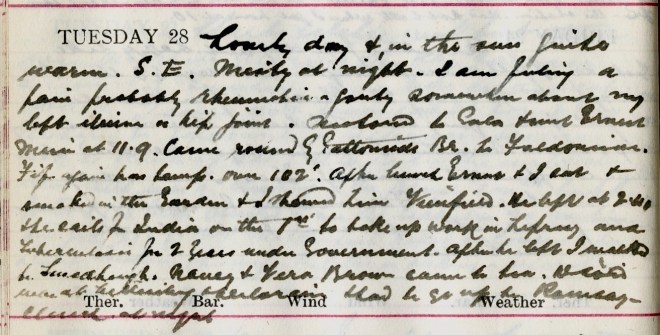 TUESDAY 28 Lovely day & in the sun quite
warm. S.E. Misty at night. I am feeling a
pain probably rheumatic or gouty somewhere about my
left ilium or hip joint. Motored to Gala & met Ernest
Muir at 11.9. Came round by Gattonside Br. to
Fif again has temp. over 102°. After lunch Ernest & I sat &
smoked in the Garden & I showed him He left at 2.40
He sails for India on the 7th to take up work in Leprosy and
Tuberculosis for 2 years under Government. After he left I walked
to Nancy & Vera Brown came to tea.
at had to go up to Ramsay
at night
Ther. Bar. Wind Weather